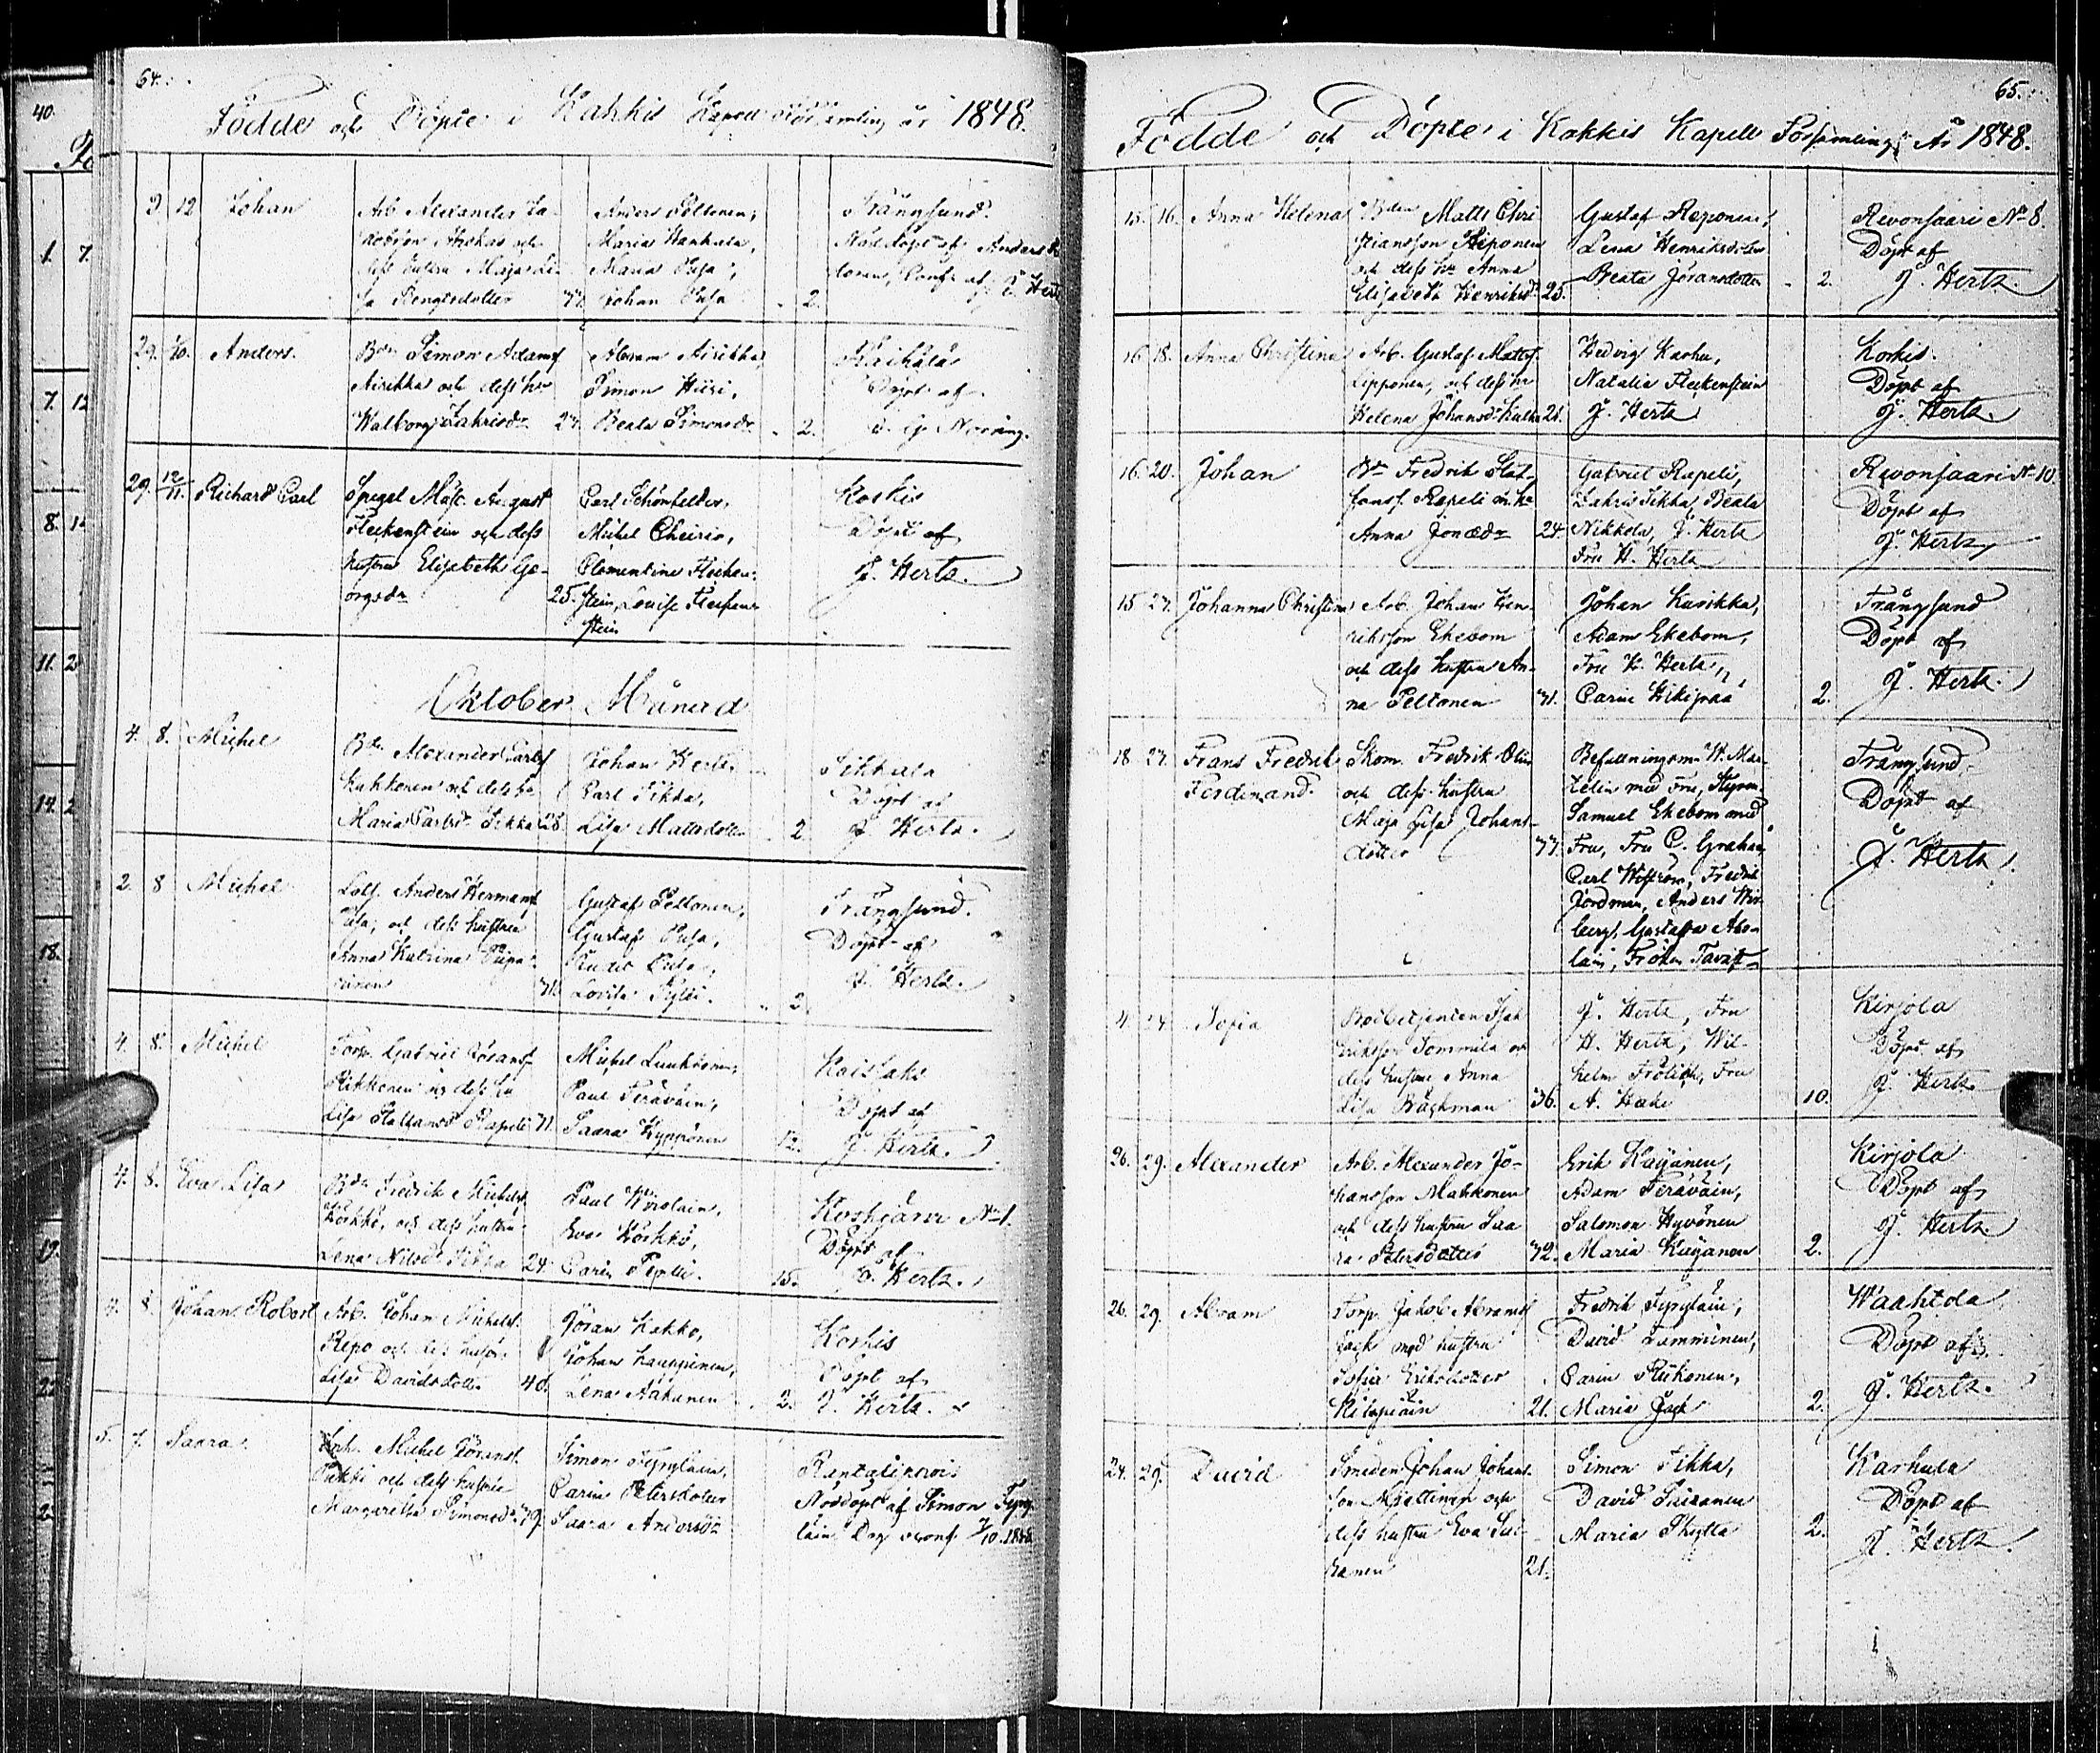 40.
1. 7.
7. 12
8. 1
11. 2
14. 2
18.
19.
22
2
64.
Födde och Döpte i Kakkis Kapell Församling år 1848.
9. 12 Johan
Arb. Alexander Ja-
kobsson Ahokas och
dess hustru Maja Li-
sa Bengtsdotter 37.
Anders Peltonen,
Maria Hanhala,
Maria Pusa,
Johan Pusa 2.
Trångsund.
Nöddöpt af Anders
J. Hertz
29. 1/10. Anders.
Bdn Simon Adamsf
Airikka och dess hu
Walborg Zakrisdr 27.
Abram Airikka,
Simon Hiiri,
Beata Simonsdr 2.
Kaihala
Döpt af
Noring.
29. 12/11. Richard Carl
Spegel Mäst. August
Fleckenstein och dess
hustru Elisabeth Ge-
orgsdr 25.
Carl Schönfelder,
Michel Cheirio,
Clementine Flecken-
stein, Louise Flecken-
stein
Koskis
Döpt af
J. Hertz.
Oktober Månad
4. 8. Michel
Bdn Alexander Carlsf
Kukkonen och dess hu
Maria Carlsdr Sikka 28.
Johan Hertz
Carl Sikka,
Lisa Mattsdotter 2.
Sikkala
Döpt af
J. Hertz.
2. 8 Michel
Anders Hermansf
Pusa, och dess hustru
Anna Katrina Piipa-
rinen 31.
Gustaf Peltonen,
Gustaf Pusa,
Pusa,
Lovisa 2.
Trångsund.
Döpt af
J. Hertz.
4. 8. Michel
Torp. Gabriel Göransf
Rikkonen och dess hu
Lisa Staffansdr Rapeli 31.
Michel Lunkkonen,
Paul Terävain,
Saara Hyppönen 12.
Koisjaki
Döpt af
J. Hertz.
4. 8. Eva Lisa
Bdn Fredrik Michelsf
Koskkö, och dess hustru
Lena Nilsdr Sikka 24.
Paul Wirolain,
Eva Koskkö,
Carin Pepili. 15.
Koskjärvi No 1.
Döpt af
J. Hertz.
4. 8. Johan Robert
Arb. Johan Michelsf
Repo och dess hustru
Lisa Davidsdotter 40.
Göran Kakko,
Johan Lauppinen,
Lena Aakanen 2.
Koskis
Döpt af
J. Hertz.
5. 7. Saara.
Michel Göransf.
Pukki och dess hustru
Margeretha Simonsdr 39.
Simon Tyrylain,
Carin Petersdotter
Saara Andersdr
Rantalinorvi
Nöddöpt af Simon Tyry-
lain 7/10. 1848
65.
Födde och Döpte i Kakkis Kapell Församling År 1848.
15. 16. Anna Helena
Bden Matts Chri
stiansson Reponen
och dess hu Anna
Elisabeth Henriksdr 25.
Gustaf Reponen,
Lena Henriksdotter
Beata Göransdotter 2.
Revonsaari No 8.
Döpt af
J. Hertz.
16. 18. Anna Christina
Arb. Gustaf Mattsf.
Lipponen, och dess hu
Helena Johansdr Kukka 21.
Hedvig Karhu,
Natalia Fleckenstein
J. Hertz
Koskis.
Döpt af
J. Hertz.
16. 20. Johan
Bdn Fredrik Staf-
fansf. Rapeli m. hu
Anna Jonædr 24.
Gabriel Rapeli,
Zakris Sikka, Beata
Nikkola, J. Hertz
Fru H. Hertz
Revonsaari No 10.
Döpt af
J. Hertz
15 27. Johanna Christina
Arb. Johan Hen-
riksson Ekebom
och dess hustru An-
na Peltonen 31.
Johan Kurikka,
Adam Ekebom,
Fru H. Hertz,
Carin Hikipää 2.
Trångsund
Döpt af
J. Hertz.
18 27. Frans Fredrik
Ferdinand.
Skom. Fredrik Olin
och dess hustru
Maja Lisa Johans-
dotter 37.
Befallningsm. W. Mar-
telin med Fru, Styrm.
Samuel Ekebom med
Fru, Fru C. Grahn,
Carl Wiström, Fredrik
Nordman, Anders Wir-
berg, Gustafva Abo-
lain, Fröken Tavast
Trångsund.
Döpt af
J. Hertz.
4. 24 Sofia
Isak
Eriksson Tommila och
dess hustru Anna
Lisa Bäckman 36.
J. Hertz, Fru
H. Hertz, Wil-
helm Frölich, Fru
A. Hake 10.
Kirjola
Döpt af
J. Hertz.
26. 29. Alexander
Arb. Alexander Jo-
hansson Makkonen
och dess hustru Saa
ra Petersdotter 32.
Erik Käyänen,
Adam Terävain,
Salomon Hyvönen
Maria Käyänen 2.
Kirjola
Döpt af
J. Hertz.
26. 29. Abram
Torp. Jakob Abramsf
Jack med hustru
Sofia Eriksdotter
Kilapiain 21.
Fredrik Tyrylain,
David Lamminen,
Carin Riikonen,
Maria Jack 2.
Waahtola
Döpt af
J. Hertz.
24. 29. David
Smeden Johan Johans-
son Miettinen och
dess hustru Eva Sui-
kanen 21.
Simon Tikka,
David Suikanen
Maria Thytta 2.
Karhula
Döpt af
J. Hertz.